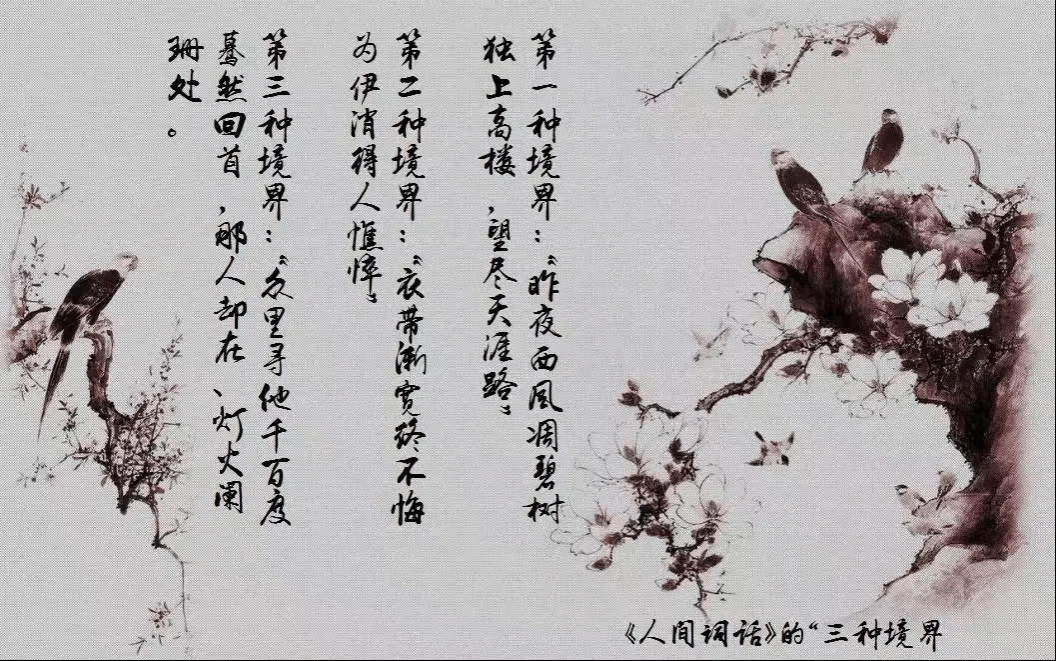 第一种境界：“昨夜西风凋碧树
独上高楼,望尽天涯路”
第二种境界：“衣带渐宽终不悔
为伊消得人憔悴”
第三种境界：“众里寻他千百度
蓦然回首,那人却在、灯火阑
珊处。
《人间词话》的“三种境界